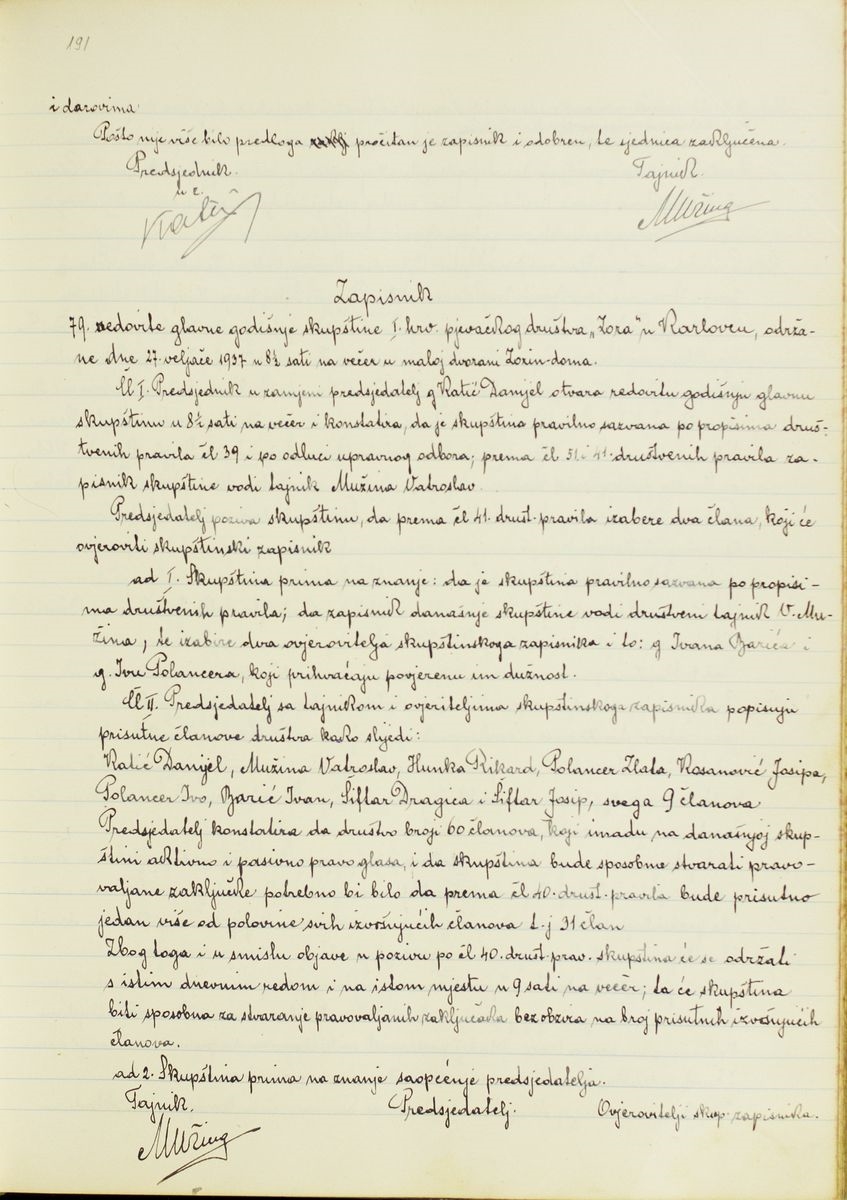 191
i darovima
Pošto nije više bilo predloga pročitan je zapisnik i odobren, te sjednica zaključena.
Predsjednik. Tajnik.
u z.
Katić MMužina
Zapisnik
79. redovite glavne godišnje skupštine I. hrv. pjevačkog društva „Zora" u Karlovcu, održa-
ne dne 27. veljače 1937 u 8½ sati na večer u maloj dvorani Zorin-doma.
Čl I. Predsjednik u zamjeni predsjedatelj g Katić Danijel otvara redovitu godišnju glavnu
skupštinu u 8½ sati na večer i konstatira, da je skupština pravilno sazvana po propisima druš-
tvenih pravila čl 39 i po odluci upravnog odbora; prema čl 51. i 41. društvenih pravila za-
pisnik skupštine vodi tajnik Mužina Vatroslav.
Predsjedatelj poziva skupštinu, da prema čl 41. društ. pravila izabere dva člana, koji će
ovjeroviti skupštinski zapisnik
ad I. Skupština prima na znanje: da je skupština pravilno sazvana po propisi-
ma društvenih pravila; da zapisnik današnje skupštine vodi društveni tajnik V. Mu-
žina, te izabire dva ovjerovitelja skupštinskoga zapisnika i to: g Ivana Barića i
g. Ivu Polancera, koji prihvaćaju povjerenu im dužnost.
Čl II. Predsjedatelj sa tajnikom i ovjeriteljima skupštinskoga zapisnika popisuju
prisutne članove društva kako slijedi:
Katić Danijel, Mužina Vatroslav, Hunka Rikard, Polancer Zlata, Kosanović Josipa,
Polancer Ivo, Barić Ivan, Šiftar Dragica i Šiftar Josip, svega 9 članova
Predsjedatelj konstatira da društvo broji 60 članova, koji imadu na današnjoj skup-
štini aktivno i pasivno pravo glasa, i da skupština bude sposobna stvarati pravo-
valjane zaključke potrebno bi bilo da prema čl 40. društ. pravila bude prisutno
jedan više od polovine svih izvršujućih članova t. j 31 član
Zbog toga i u smislu objave u pozivu po čl 40. društ. prav. skupština će se održati
s istim dnevnim redom i na istom mjestu u 9 sati na večer; ta će skupština
biti sposobna za stvaranje pravovaljanih zaključaka bez obzira na broj prisutnih izvršujućih
članova.
ad 2. Skupština prima na znanje saopćenje predsjedatelja.
Tajnik. Predsjedatelj. Ovjerovitelji skup. zapisnika.
MMužina